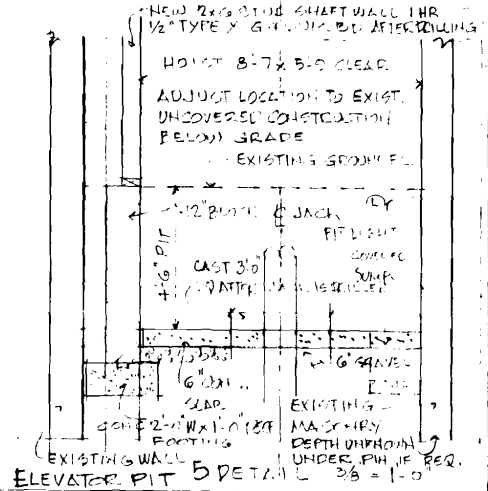 NEW 2x6 STUD SHAFT WALL 1 HR
1/2" TYPE X GYPSUM BD AFTER DRILLING
HOIST 8'-7 x 5'-0 CLEAR
ADJUST LOCATION TO EXIST.
UNCOVERED CONSTRUCTION
BELOW GRADE
EXISTING GROUND FL.
12" BLOCK
JACK
PIT LIGHT
COVERED
SUMP
4'-6" PIT
CAST 3'0"
AFTER IS DRILLED
6" GRAVEL
6" CONC.
SLAB
EXISTING
MASONRY
DEPTH UNKNOWN
UNDER PIN IF REQ.
CONC 2'-0" W x 1'-0"
FOOTING
EXISTING WALL
ELEVATOR PIT 5 DETAIL 3/8 = 1'-0"